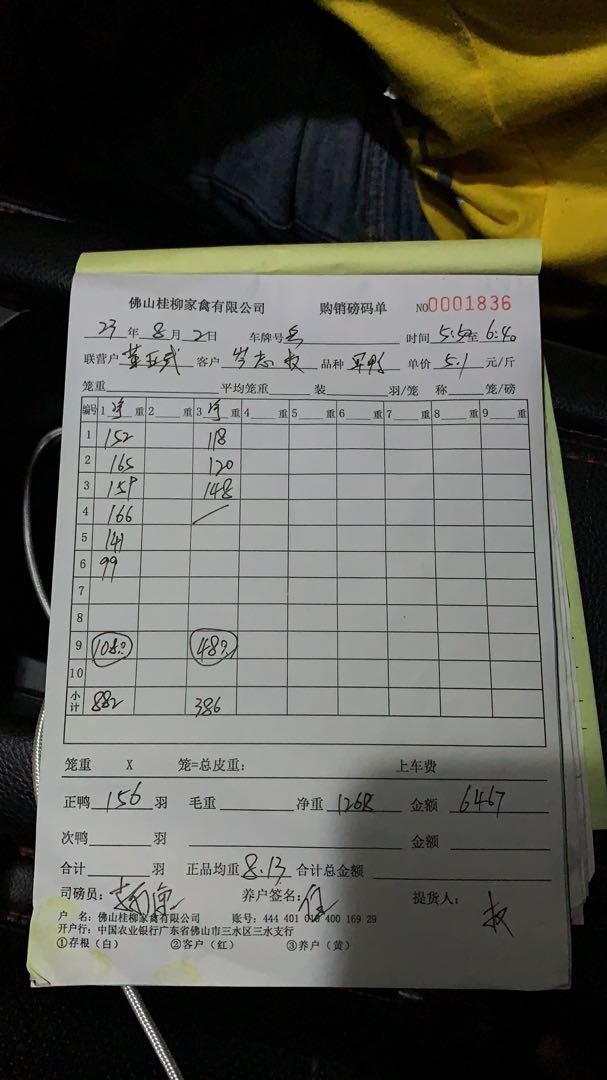 佛山桂柳家禽有限公司 购销磅码单 NO0001836
23年8月2日 车牌号 时间5:50至6:40
联营户 客户 岑志权 品种 单价5.1元/斤
笼重 平均笼重 装 羽/笼 称 笼/磅
编号 1净重 2 重 3净重 4 重 5 重 6 重 7 重 8 重 9 重
1 152 118
2 165 120
3 159 148
4 166
5 141
6 99
7
8
9
10
小计 882 386
笼重 X 笼=总皮重： 上车费
正鸭156羽 毛重 净重1268 金额6467
次鸭 羽 金额
合计 羽 正品均重8.13 合计总金额
司磅员： 养户签名： 提货人：权
户 名：佛山桂柳家禽有限公司 账号：444 401 010 400 169 29
开户行：中国农业银行广东省佛山市三水区三水支行
①存根（白） ②客户（红） ③养户（黄）